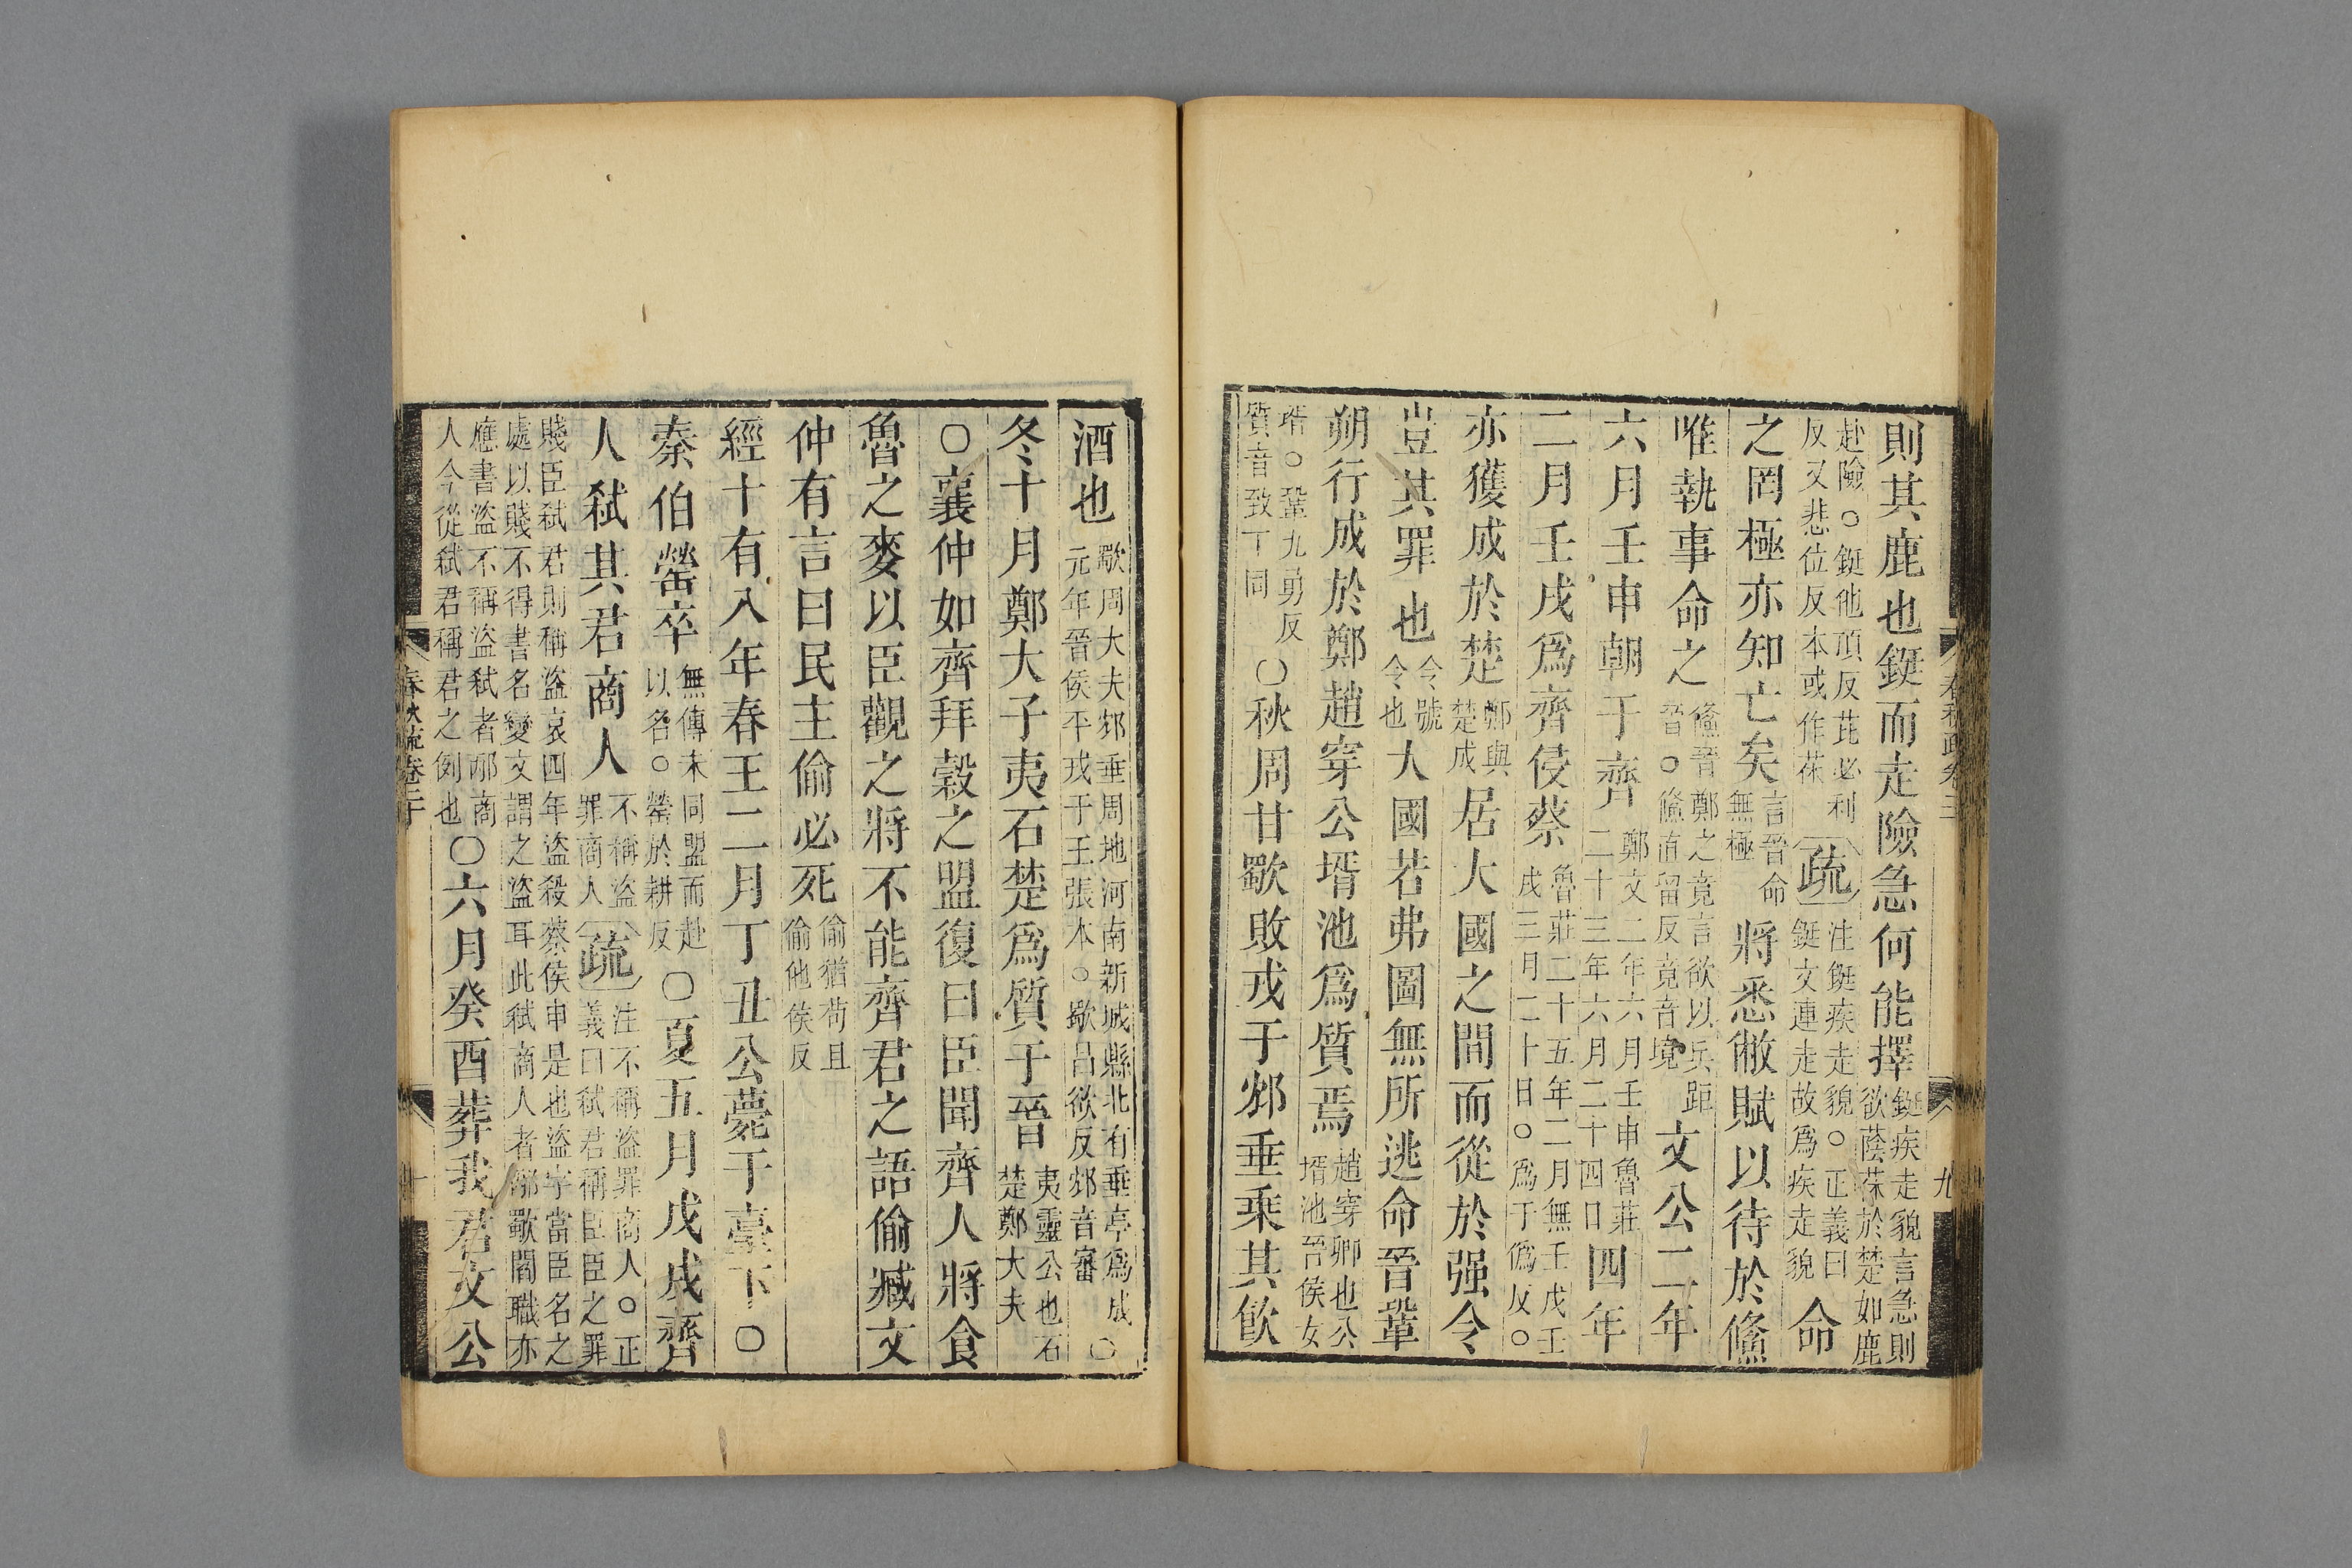 則其鹿也鋌而走險急何能擇鋌疾走貌言急則欲蔭茠於楚如鹿
赴險○鋌他頂反芘必利反又悲位反本或作茠疏注鋌疾走貌○正義曰鋌文連走故爲疾走貌命
之罔極亦知亡矣言晉命無極將悉敝賦以待於鯈
唯執事命之鯈晉鄭之竟言欲以兵距晉○鯈直留反竟音境文公二年
六月壬申朝于齊鄭文二年六月壬申魯莊二十三年六月二十四日四年
二月壬戌爲齊侵蔡魯莊二十五年二月無壬戌壬戌三月二十日○爲于僞反○
亦獲成於楚鄭與楚成居大國之間而從於强令
豈其罪也令號令也大國若弗圖無所逃命晉鞏
朔行成於鄭趙穿公壻池爲質焉趙穿卿也公壻池晉侯女
壻○鞏九勇反質音致丁同○秋周甘歜敗戎于邥垂乘其飲
春秋疏卷二
九
酒也歜周大夫邥垂周地河南新城縣北有垂亭爲成元年晉侯平戎于王張本○歜昌欲反邥音審○
冬十月鄭大子夷石楚爲質于晉夷靈公也石楚鄭大夫
○襄仲如齊拜穀之盟復曰臣聞齊人將食
魯之麥以臣觀之將不能齊君之語偷臧文
仲有言曰民主偷必死偷猶苟且偷他侯反
經十有八年春王二月丁丑公薨于臺下○
秦伯罃卒無傳未同盟而赴以名○罃於耕反○夏五月戊戌齊
人弑其君商人不稱盜罪商人疏注不稱盜罪商人○正義曰弑君稱臣臣之罪
賤臣弑君則稱盜哀四年盜殺蔡侯申是也盜字當臣名之處以賤不得書名變文謂之盜耳此弑商人者邴歜閻職亦
應書盜不稱盜弑者邴商人令從弑君稱君之例也○六月癸酉葬我君文公
春秋疏卷二十
十